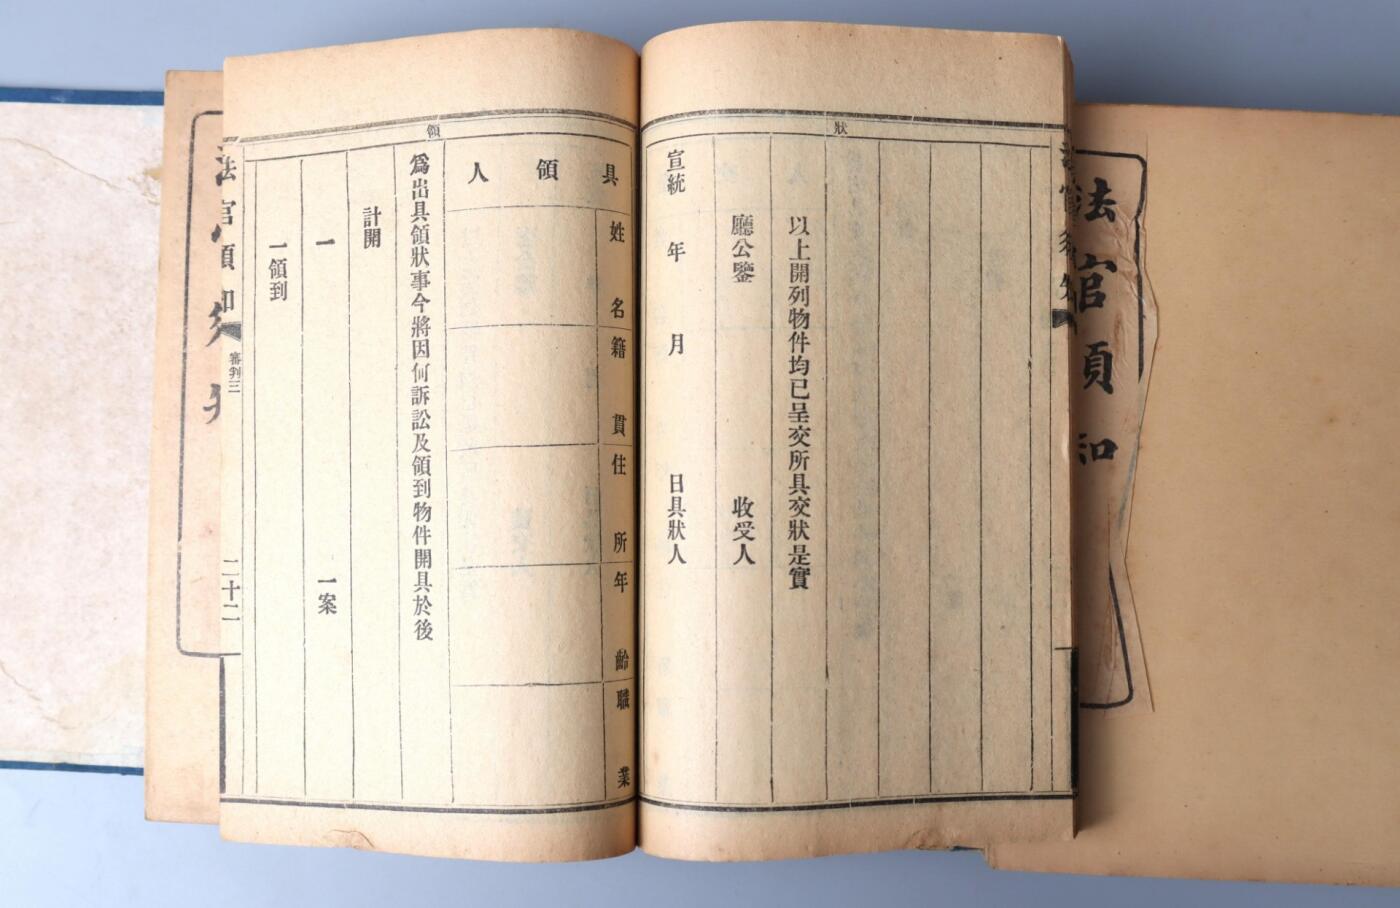 狀
以上開列物件均已呈交所具交狀是實
廳公鑒 收受人
宣統 年 月 日具狀人
領
具領人
姓名
籍貫
住所
年齡
職業
爲出具領狀事今將因何訴訟及領到物件開具於後
計開
一 一案
一領到
法官須知
審判三
二十二
法官須知